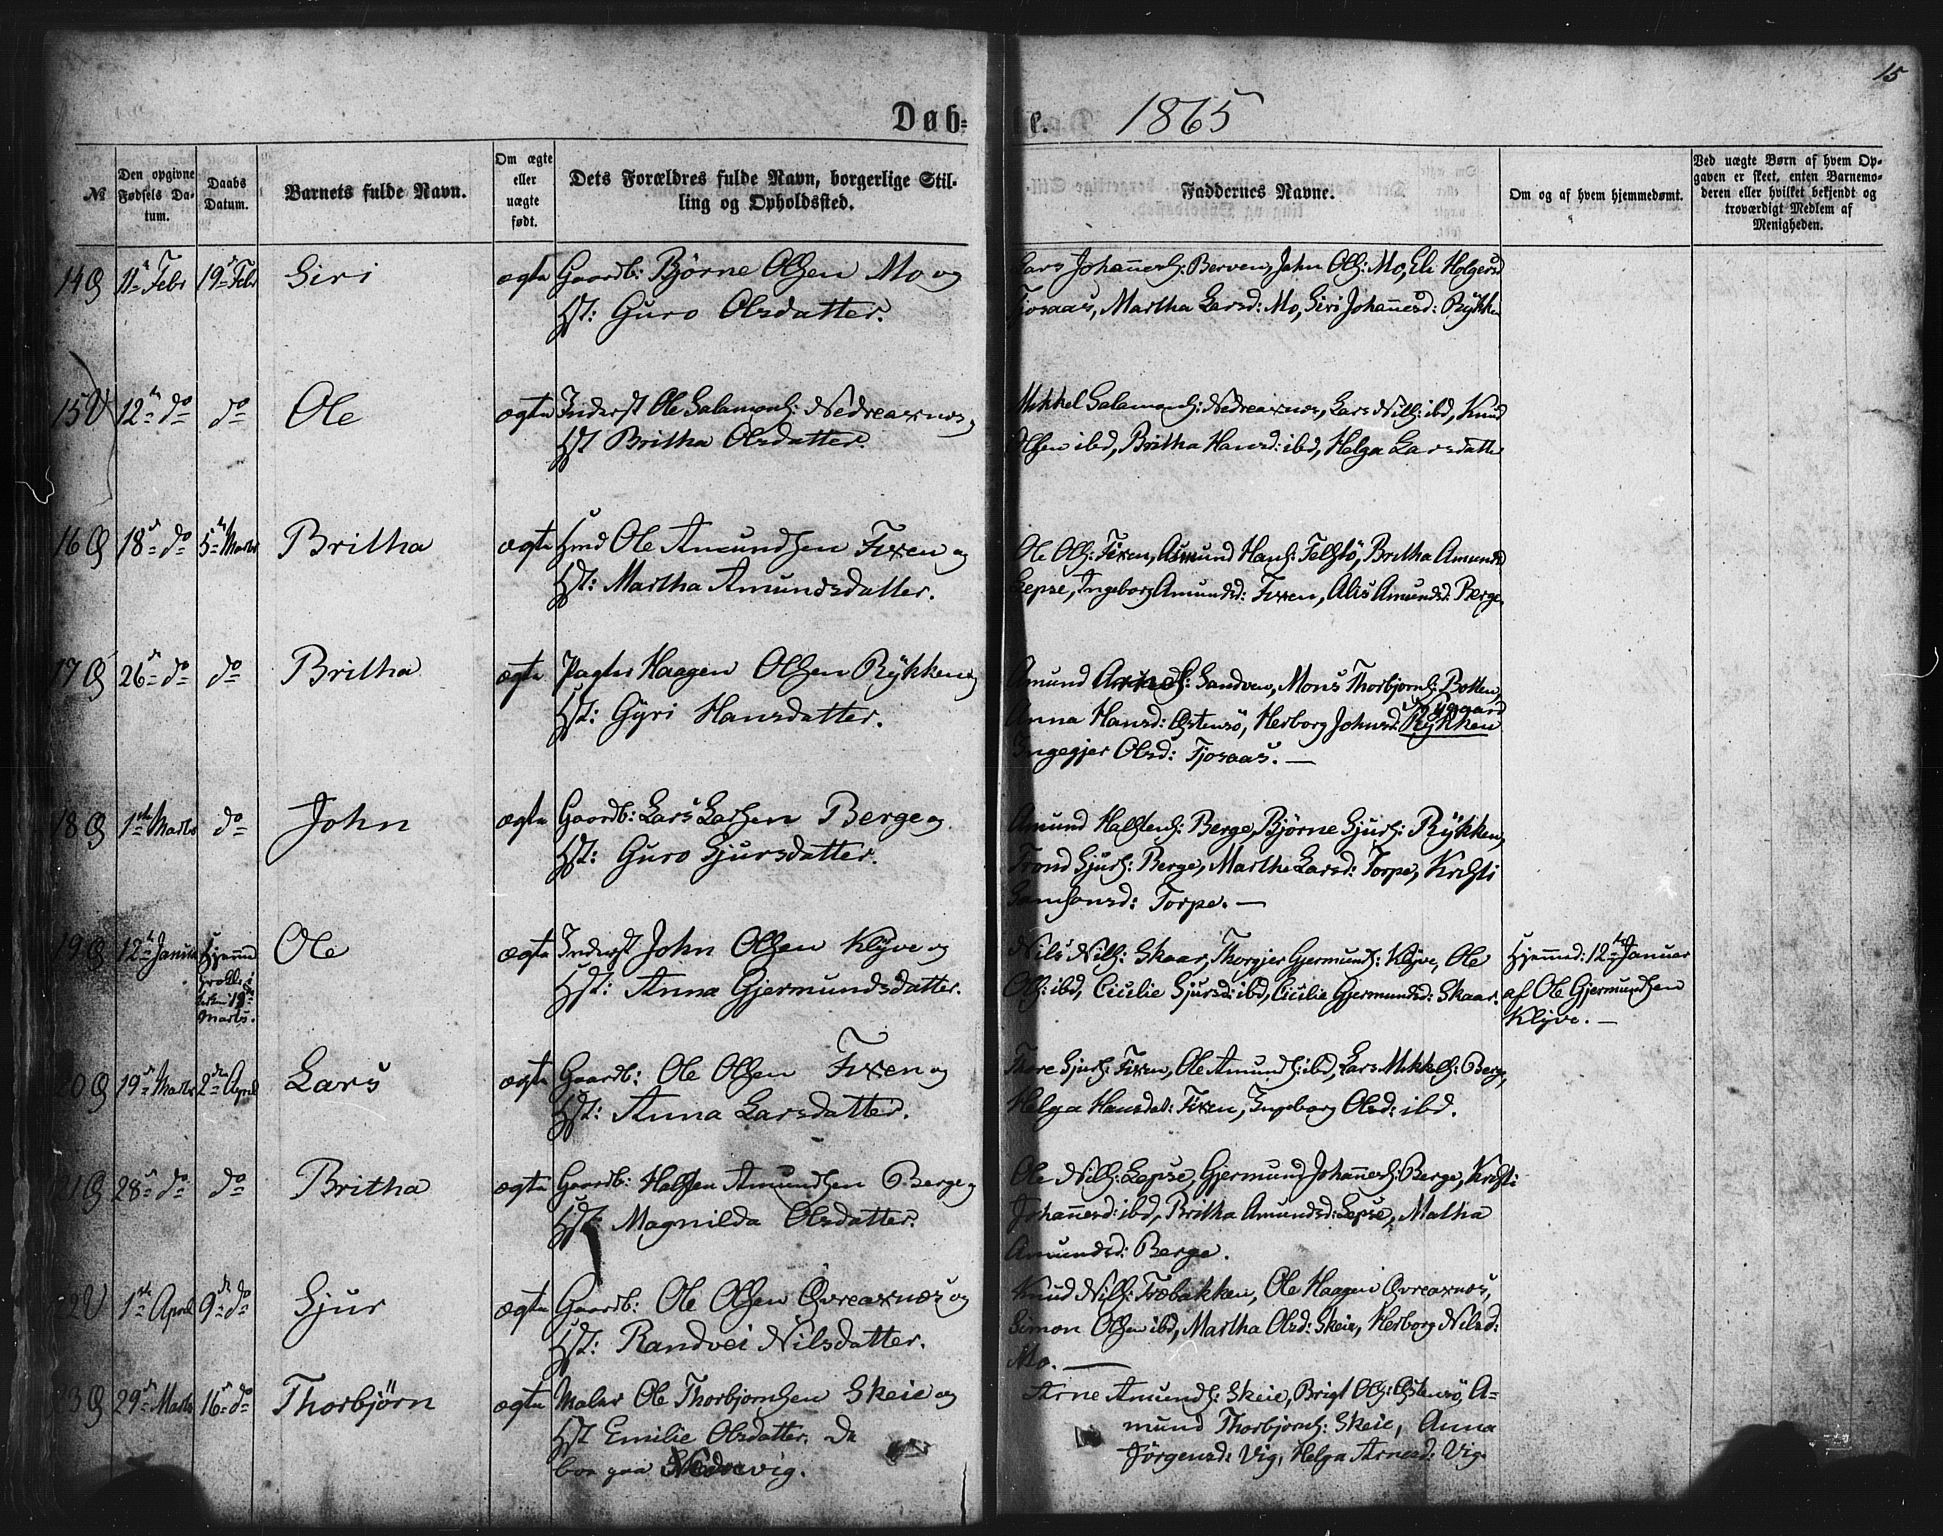 15
Døb= te. 1865
№
Den opgivne
Fødsels Da-
tum.
Daabs
Datum.
Barnets fulde Navn.
Om ægte
eller
uægte
født.
Dets Forældres fulde Navn, borgerlige Stil-
ling og Opholdssted.
Faddernes Navne.
Om og af hvem hjemmedømt.
Ved uægte Børn af hvem Op-
gaven er skeet, enten Barnemo-
deren eller hvilket bekjendt og
troværdigt Medlem af
Menigheden.
14 11te Febr 19de Febr Siri ægte Gaardb: Bjørne Olsen Mo og
Hst: Guro Olsdatter.
Lars Johanness: Berven, John Ols: Mo, Eli Holgersd
Fjosaas, Martha Larsd: Mo, Siri Johannesd: Rÿkken
15 12te do do Ole ægte Inderst Ole Salamons: Nedreaxnes og
Hst Britha Olsdatter.
Mikkel Salamons: Nedreaxnes, Lars Nils: ibd, Knud
Olsen ibd, Britha Hansd: ibd, Helga Larsdatter
16 18de do 5te Marts Britha ægte Hmd Ole Amundsen Fixen og
Hst: Martha Amundsdatter.
Ole Ols: Fixen, Asmund Hans: Telstö, Britha Amundsd
Lepse, Ingeborg Amundsd: Fixen, Alis Amundsd: Berge.
17 26de do do Britha ægte Pagter Haagen Olsen Rÿkken og
Hst: Gÿri Hansdatter.
Amund Arnes: Sandven, Mons Thorbjørns: Botten,
Anna Hansd: Østensö, Herborg Johnsd: Rÿkken
Ingegjer Olsd: Fjosaas. —
18 1ste Marts do John ægte Gaardb: Lars Larsen Berge og
Hst: Guro Sjursdatter.
Amund Halstens: Berge, Bjørne Sjurs: Rÿkken,
Trond Sjurs: Berge, Martha Larsd: Torpe, Kristi
Samsonsd: Torpe. —
19 12te Januar Hjemmed
Marts.
Ole ægte Inderst John Olsen Klÿve og
Hst: Anna Gjermundsdatter.
Nils Nils: Skaar, Thorgjer Gjermunds: Klÿve, Ole
Ols: ibd, Cicilie Sjursd: ibd, Cicilie Gjermundsd: Skaar.
Hjemmed: 12te Januar
af Ole Gjermundsen
Klÿve. —
20 19de Marts 2den April Lars ægte Gaardb: Ole Olsen Fixen og
Hst: Anna Larsdatter.
Thore Sjurs: Fixen, Ole Amunds: ibd, Lars Mikkels: Berge,
Helga Hansdat: Fixen, Ingeborg Olsd: ibd.
21 28de do do Britha ægte Gaardb: Halsten Amundsen Berge og
Hst: Magnilda Olsdatter.
Ole Nils: Lepse, Gjermund Johanness: Berge, Kristi
Johannesd: ibd, Britha Amundsd: Lepse, Matha
Amundsd: Berge.
22 1ste April 9de do Sjur ægte Gaardb: Ole Olsen Øvreaxnes og
Hst: Randvei Nilsdatter.
Knud Nils: Træbakken, Ole Haagens Øvreaxnes,
Simon Olsen ibd, Martha Olsd: Skeie, Herborg Nilsd:
Mo. —
23 29de Marts 16de do Thorbjörn ægte Maler Ole Thorbjørnsen Skeie og
Hst Emilie Olsdatter. De
boe paa Nedrevig.
Arne Amunds: Skeie, Brigt Ols: Østensö, A=
mund Thorbjørns: Skeie, Anna
Jörgensd: Vig, Helga Arnesd: Vig.